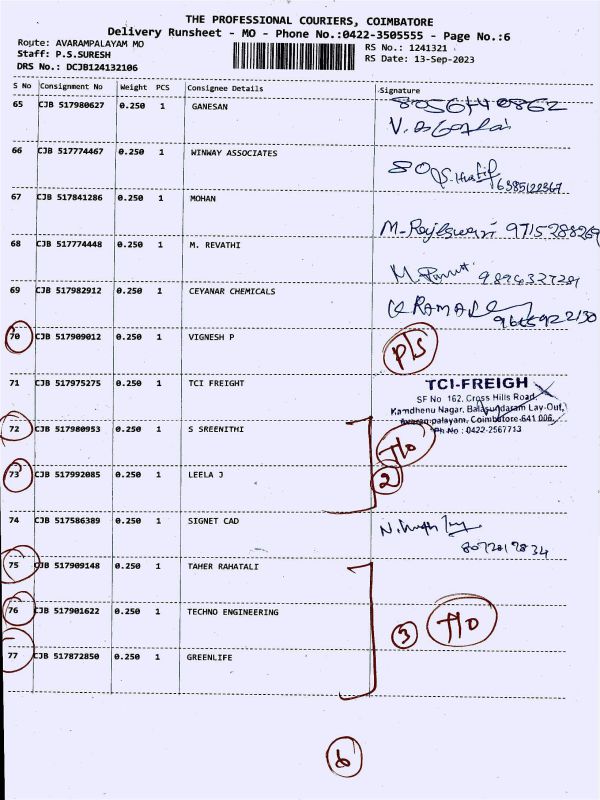 THE PROFESSIONAL COURIERS, COIMBATORE
Delivery Runsheet - MO - Phone No.:0422-3505555 - Page No.:6
Route: AVARAMPALAYAM MO
Staff: P.S.SURESH
DRS No.: DCJB124132106
RS No.: 1241321
RS Date: 13-Sep-2023
S No Consignment No Weight PCS Consignee Details Signature
65 CJB 517980627 0.250 1 GANESAN
66 CJB 517774467 0.250 1 WINWAY ASSOCIATES
67 CJB 517841286 0.250 1 MOHAN
M-Rajeswari 9715288269
68 CJB 517774448 0.250 1 M. REVATHI
9894327281
69 CJB 517982912 0.250 1 CEYANAR CHEMICALS
70 CJB 517909012 0.250 1 VIGNESH P P/S
71 CJB 517975275 0.250 1 TCI FREIGHT
TCI-FREIGH
SF No 162, Cross Hills Road,
Kamdhenu Nagar, Balasundaram Lay-Out,
Avarampalayam, Coimbatore-641 006.
Ph No : 0422-2567713
72 CJB 517980953 0.250 1 S SREENITHI
73 CJB 517992085 0.250 1 LEELA J 2
74 CJB 517586389 0.250 1 SIGNET CAD
8072017834
75 CJB 517909148 0.250 1 TAHER RAHATALI
76 CJB 517901622 0.250 1 TECHNO ENGINEERING
3
77 CJB 517872850 0.250 1 GREENLIFE
6